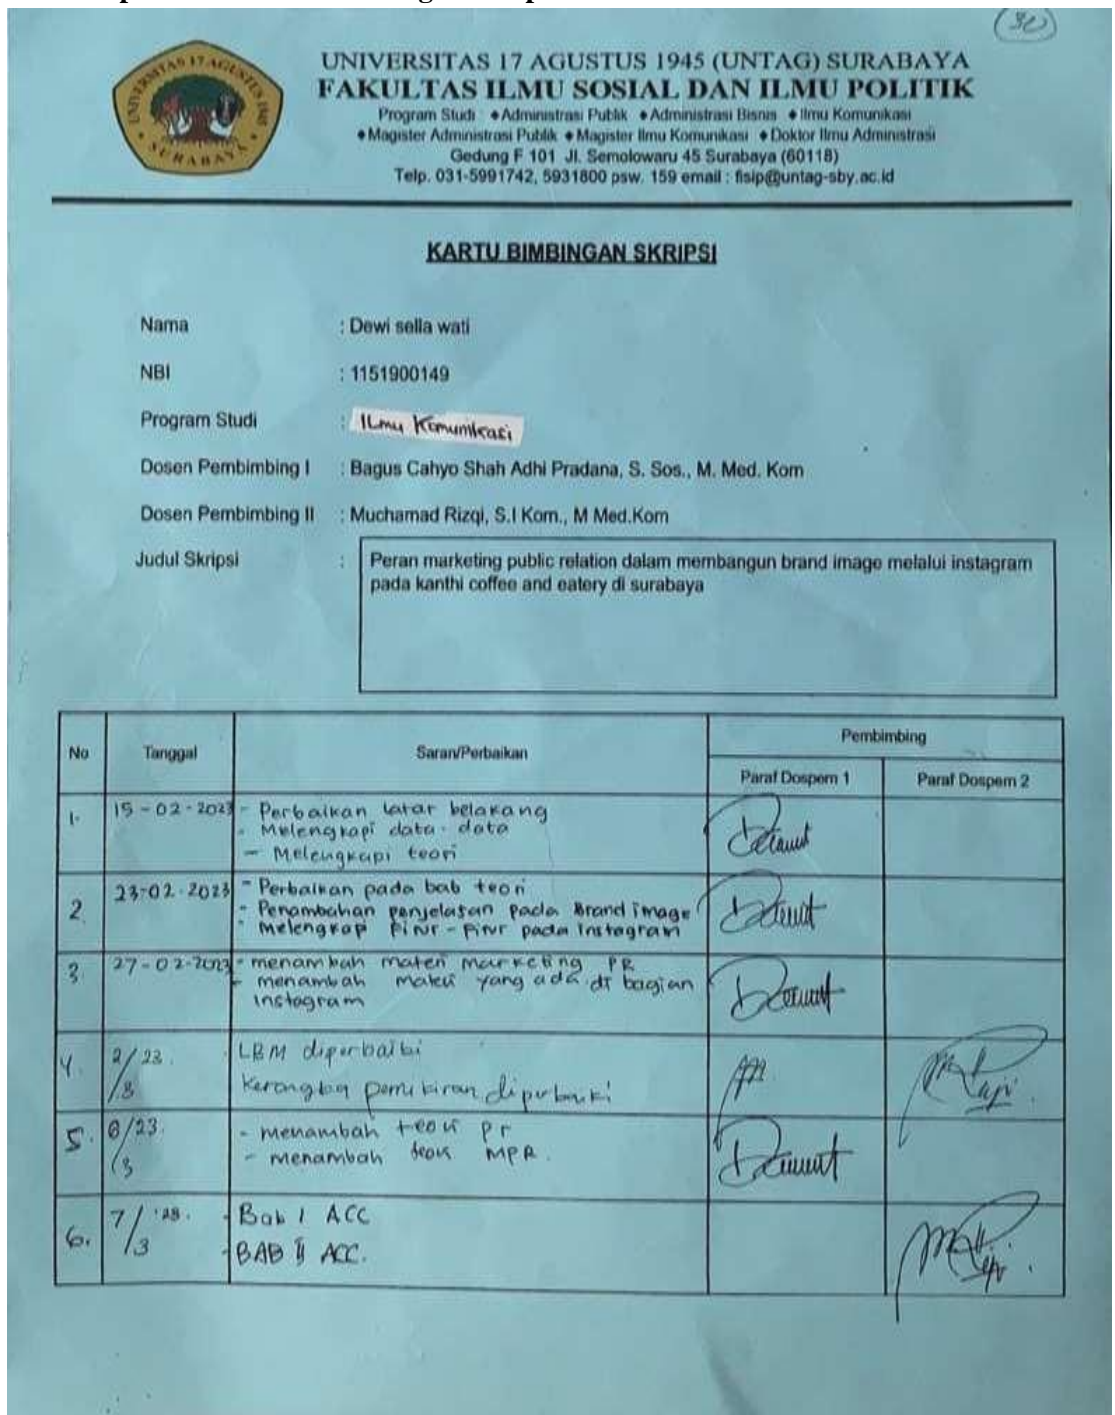 30
UNIVERSITAS 17 AGUSTUS 1945
SURABAYA
UNIVERSITAS 17 AGUSTUS 1945 (UNTAG) SURABAYA
FAKULTAS ILMU SOSIAL DAN ILMU POLITIK
Program Studi : ◆Administrasi Publik ◆Administrasi Bisnis ◆Ilmu Komunikasi
◆Magister Administrasi Publik ◆Magister Ilmu Komunikasi ◆Doktor Ilmu Administrasi
Gedung F 101 Jl. Semolowaru 45 Surabaya (60118)
Telp. 031-5991742, 5931800 psw. 159 email : fisip@untag-sby.ac.id
KARTU BIMBINGAN SKRIPSI
Nama : Dewi sella wati
NBI : 1151900149
Program Studi : Ilmu Komunikasi
Dosen Pembimbing I : Bagus Cahyo Shah Adhi Pradana, S. Sos., M. Med. Kom
Dosen Pembimbing II : Muchamad Rizqi, S.I Kom., M Med.Kom
Judul Skripsi : Peran marketing public relation dalam membangun brand image melalui instagram
pada kanthi coffee and eatery di surabaya
No Tanggal Saran/Perbaikan Pembimbing
Paraf Dospem 1 Paraf Dospem 2
1. 15-02-2023 - Perbaikan latar belakang
- Melengkapi data-data
- Melengkapi teori
2. 23-02-2023 - Perbaikan pada bab teori
- Penambahan penjelasan pada Brand image
- Melengkapi fitur-fitur pada Instagram
3 27-02-2023 - menambah materi marketing PR
- menambah materi yang ada di bagian
instagram
4. 2/3 23. LBM diperbaiki
Kerangka pemikiran diperbaiki
5. 6/3 23. - menambah teori Pr
- menambah teori MPR.
6. 7/3 '23. - Bab I ACC
- BAB II ACC.